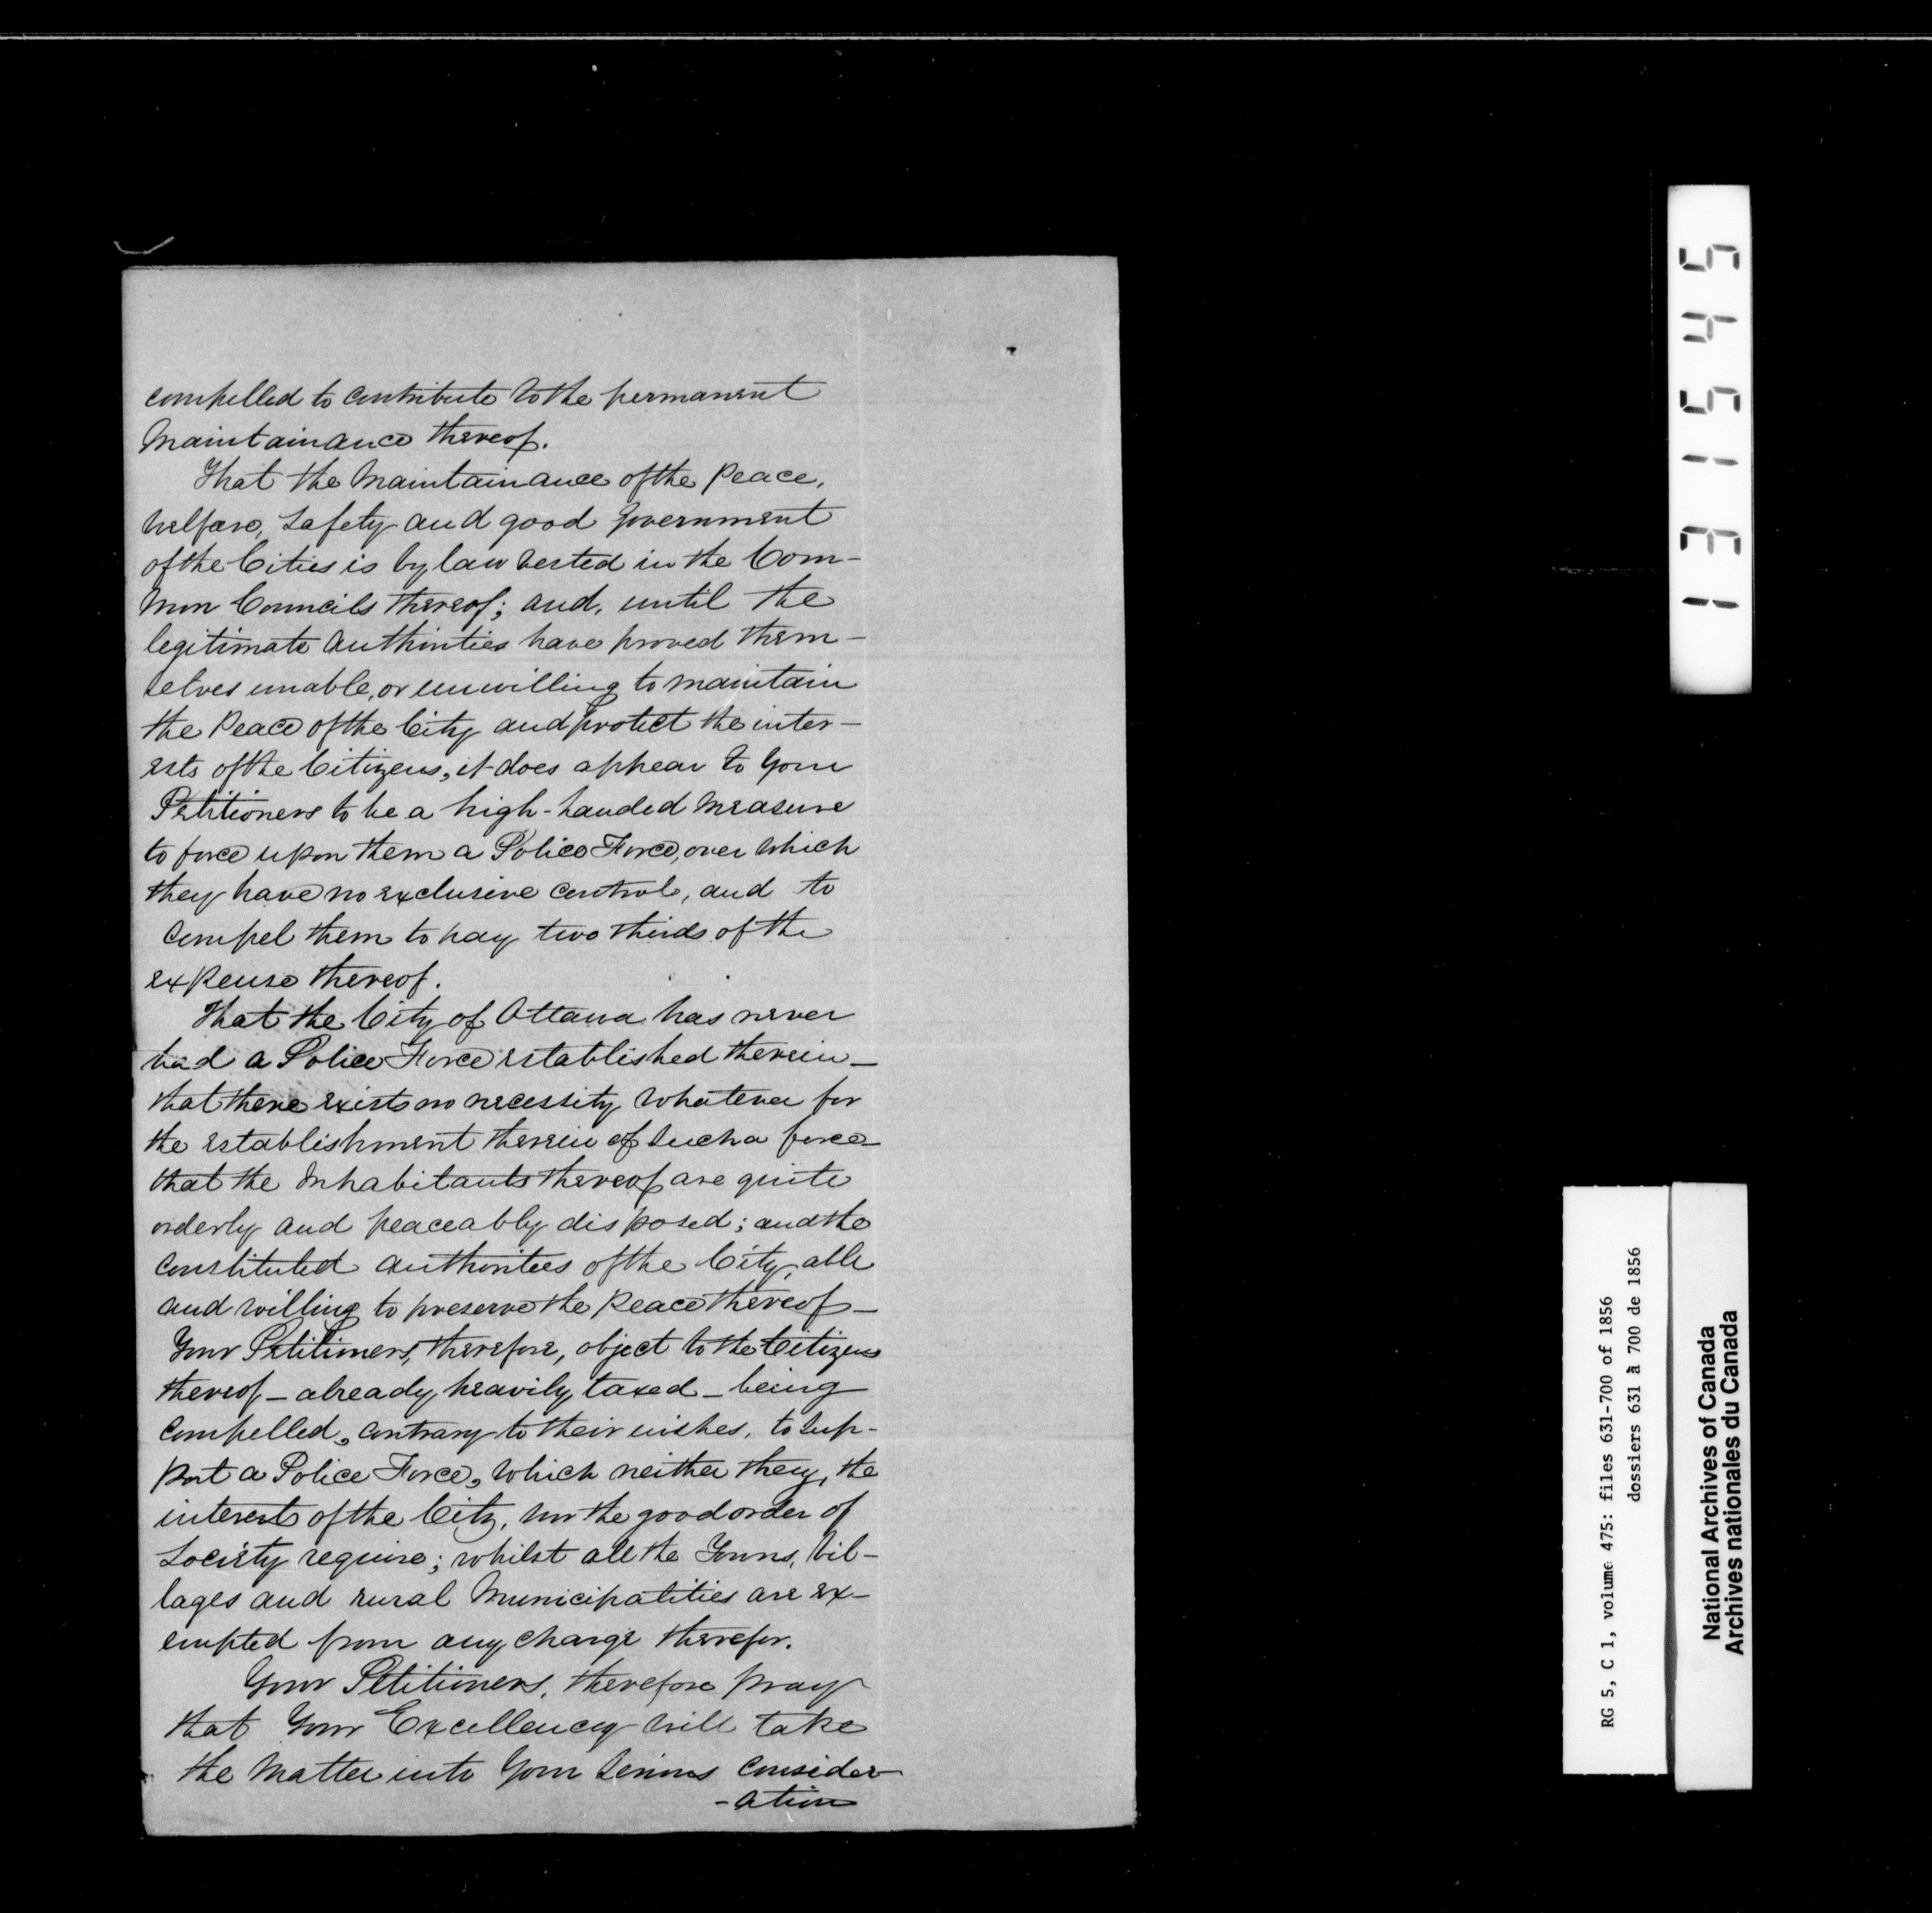 compelled to contribute to the permanent
Maintainance thereof.
That the Maintainance of the Peace,
Welfare, Safety and good Government
of the Cities is by law vested in the Com-
mon Councils thereof; and, until the
legitimate authorities have proved them-
selves unable, or unwilling to maintain
the Peace of the City and protect the inter-
ests of the Citizens, it does appear to Your
Petitioners to be a high-handed measure
to force upon them a Police Force, over which
they have no exclusive control, and to
compel them to pay two thirds of the
expense thereof.
That the City of Ottawa has never
had a Police Force established therein_
that there exists no necessity whatever for
the establishment therein of such a force_
that the Inhabitants thereof are quite
orderly and peaceably disposed; and the
Constituted authorities of the City, able
and willing to preserve the Peace thereof_
Your Petitioners, therefore, object to the Citizens
thereof_ already heavily taxed_ being
compelled, contrary to their wishes, to sup-
port a Police Force, which neither they, the
interests of the City, nor the good order of
Society require; whilst all the Towns, Vil-
lages and rural Municipalities are ex-
empted from any charge therefor.
Your Petitioners, therefore pray
that Your Excellency will take
the matter into Your serious consider
-ation
131545
RG 5, C 1, volume 475: files 631-700 of 1856
dossiers 631 à 700 de 1856
National Archives of Canada
Archives nationales du Canada